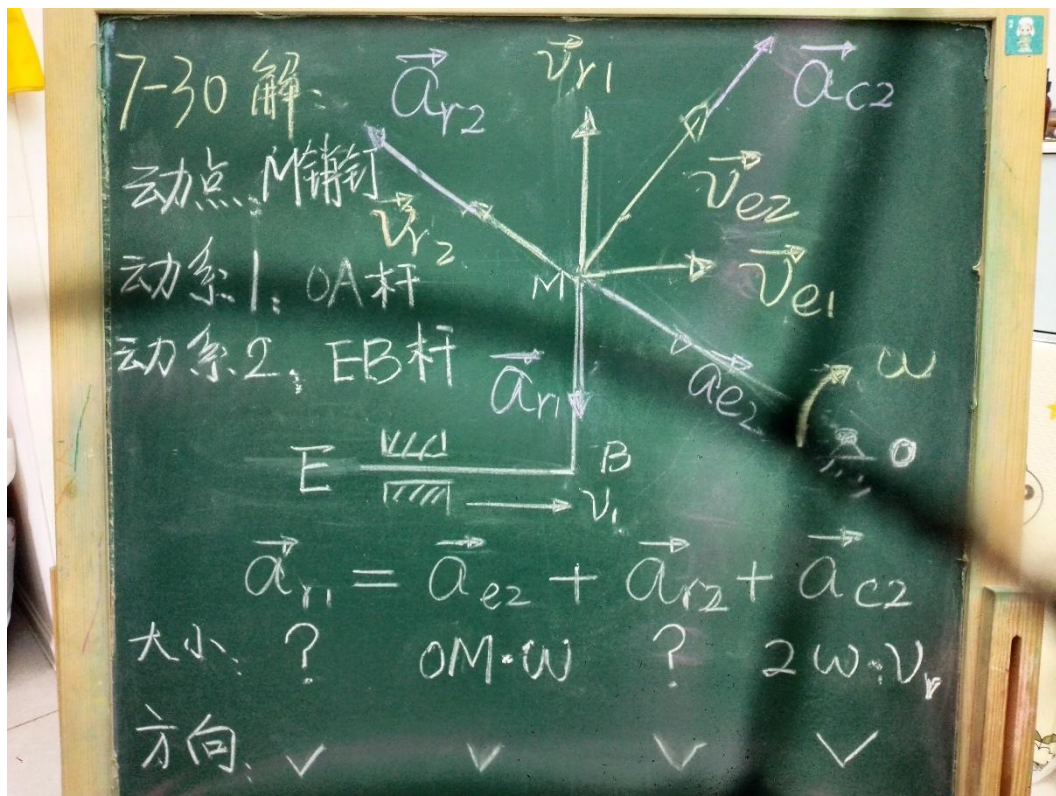 7-30 解:
动点、M销钉
动系1: OA杆
动系2: EB杆
a⃗r2
v⃗r1
a⃗c2
v⃗r2
v⃗e2
M
v⃗e1
a⃗r1
a⃗e2
ω
O
E
B
v1
a⃗r1 = a⃗e2 + a⃗r2 + a⃗c2
大小: ? OM·ω ? 2ω·vr
方向: ✓ ✓ ✓ ✓